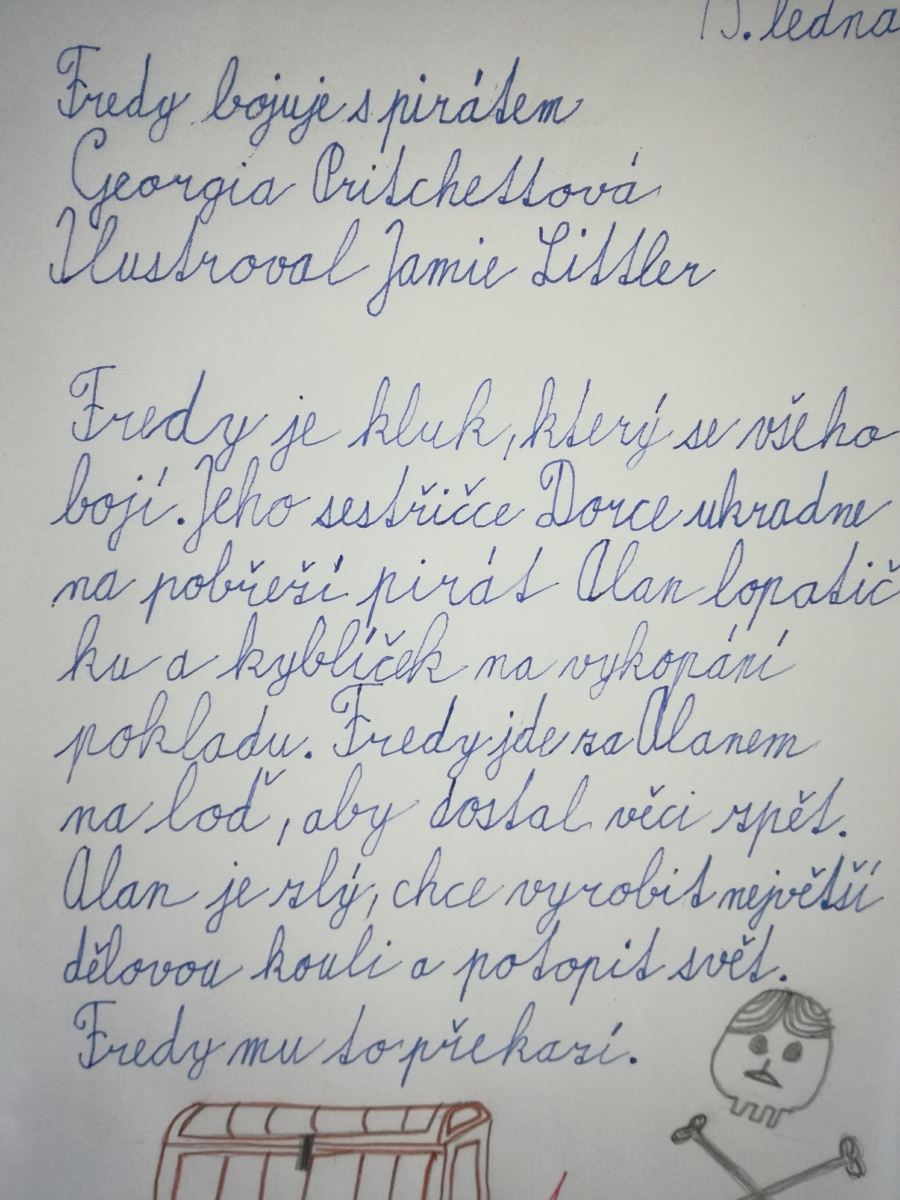 ledna
Fredy bojuje s pirátem
Georgia Pritchettová
Ilustroval Jamie Littler
Fredy je kluk, který se všeho
bojí. Jeho sestřičce Dorce ukradne
na pobřeží pirát Alan lopatič
ku a kyblíček na vykopání
pokladu. Fredy jde za Alanem
na loď, aby dostal věci zpět.
Alan je zlý, chce vyrobit největší
dělovou kouli a potopit svět.
Fredy mu to překazí.